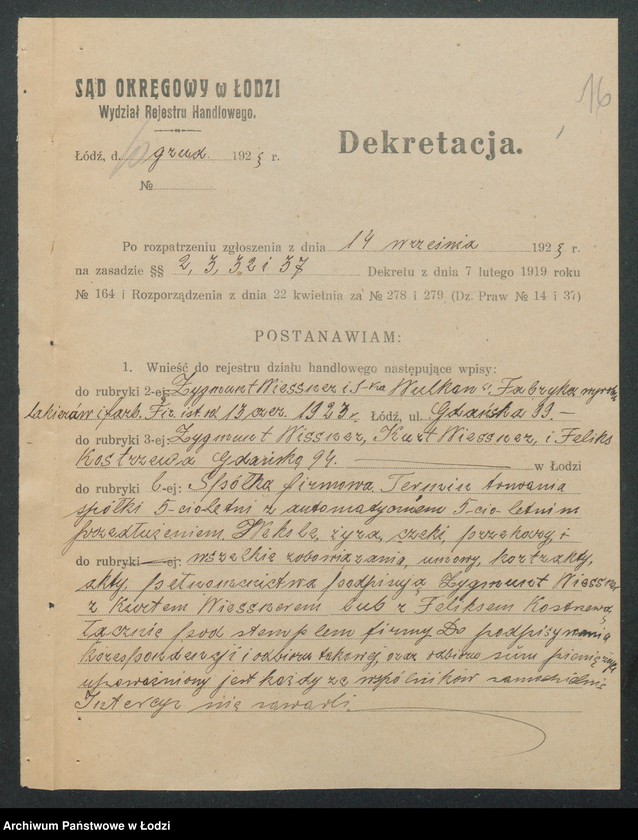 16
SĄD OKRĘGOWY w ŁODZI
Wydział Rejestru Handlowego.
Dekretacja.
Łódź, d. grud. 1923 r.
№
Po rozpatrzeniu zgłoszenia z dnia 14 września 1923 r.
na zasadzie §§ 2, 3, 32 i 37 Dekretu z dnia 7 lutego 1919 roku
№ 164 i Rozporządzenia z dnia 22 kwietnia za № 278 i 279 (Dz. Praw № 14 i 37)
POSTANAWIAM:
1. Wnieść do rejestru działu handlowego następujące wpisy:
do rubryki 2-ej: Zygmunt Wiessner i S-ka Wulkan" Fabryka
lakierów i farb. Fir. ist. od 13 czer. 1923 r. Łódź, ul. Gdańska 99.—
do rubryki 3-ej: Zygmunt Wissner, Kurt Wiessner, i Feliks
Kostrzewa Gdańska 94. w Łodzi
do rubryki 6-ej: Spółka firmowa. Termin trwania
spółki 5-cioletni z automatycznem 5-cio letnim
przedłużeniem. Weksle, żyra, czeki, przekazy i
do rubryki ej: wszelkie zobowiązania, umowy, kontrakty,
akty, pełnomocnictwa podpisują Zygmunt Wiessner
z Kurtem Wiessnerem lub z Feliksem Kostrzewą
łącznie pod stemplem firmy. Do podpisywania
korespondencji i odbioru takowej, oraz odbioru sum pieniężnych
upoważniony jest każdy ze wspólników samodzielnie
Intercyz nie zawarli.
Archiwum Państwowe w Łodzi